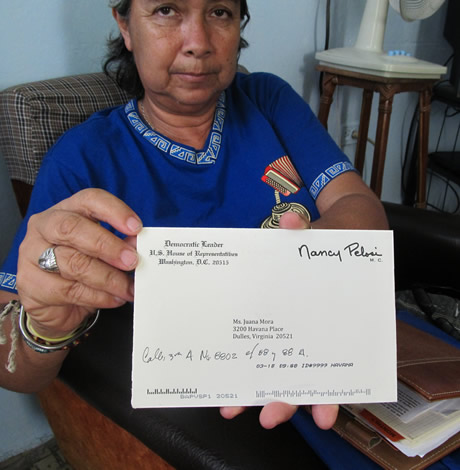 Democratic Leader
U.S. House of Representatives
Washington, D.C. 20515
Nancy Pelosi
M.C.
Ms. Juana Mora
3200 Havana Place
Dulles, Virginia 20521
A No 8802 e/ 88 y 88 A.
03-10 09:00 ID#9999 HAVANA
20521